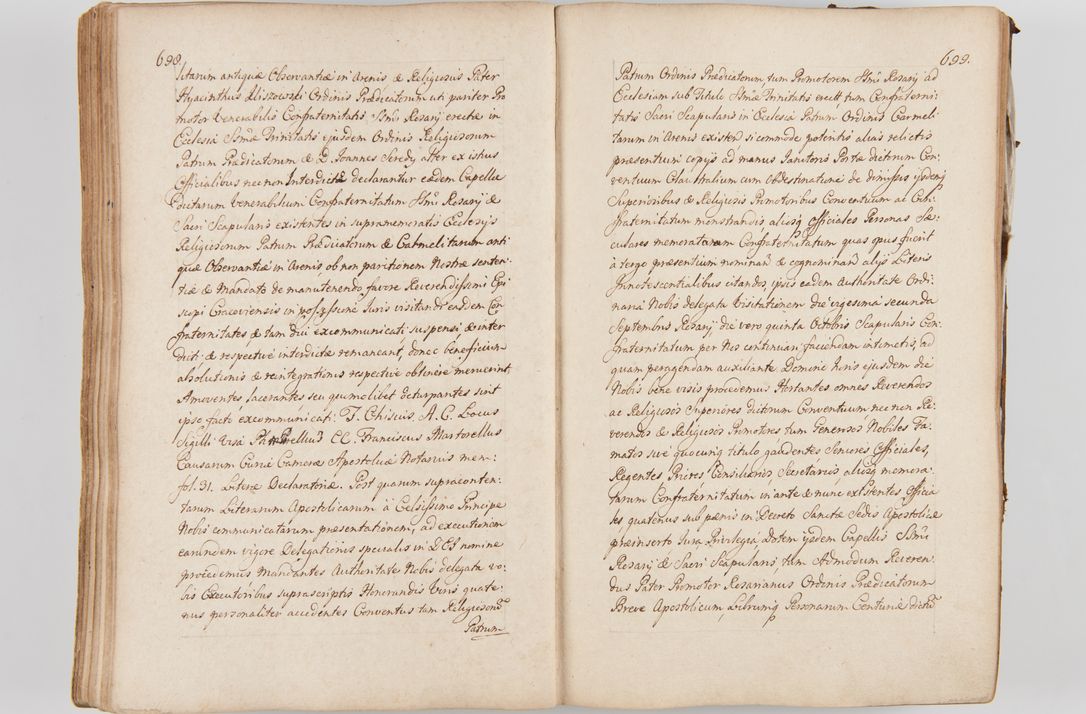 698.
litarum antiquæ Observantiæ in Arenis & Religiosus Pater
Hyacinthus Kliszowski Ordinis Prædicatorum uti pariter Pro
motor Venerabilis Confraternitatis Ssmi Rosarij erectæ in
Ecclesia Ssmæ Trinitatis ejusdem Ordinis Religiosorum
Patrum Prædicatorum & D. Joannes Seredy alter ex istius
Officialibus nec non Interdictæ declarantur eædem Capellæ
dictarum Venerabilium Confraternitatum Ssmi Rosarij &
Sacri Scapularis existentes in supramemoratis Ecclesijs
Religiosorum Patrum Prædicatorum & Carmelitarum anti
quæ Observantiæ in Arenis ob non paritionem Nostræ senten
tiæ & Mandato de manutenendo favore Reverendissimi Epi
scopi Cracoviensis in possessione Juris visitandi easdem Con
fraternitates & tam diu excommunicati suspensi & inter
dicti & respective interdictæ remaneant, donec beneficium
absolutionis & reintegrationis respective obtinere meruerint
Amoventes lacerantes seu quomolibet deturpantes sint
ipso facto excommunicati. F. Ghisius A. C. Locus
Sigilli Ursa CC. Franciscus Martorellus
Causarum Curiæ Cameræ Apostolicæ Notarius mem:
fol. 31. Literæ Declaratoriæ. Post quarum supraconten:
tarum Literarum Apostolicarum à Celsissimo Principe
Nobis communicatarum præsentationem, ad executionem
earundem vigore Delegationis specialis in DEI nomine
procedemus Mandantes Authoritate Nobis delegata vo:
bis Executoribus suprascriptis Honorandis Viris quate:
nus personaliter accedentes Conventus tam Religiosorum
Patrum
699.
Patrum Ordinis Prædicatorum tum Promotorem Ssmi Rosarij ad
Ecclesiam sub Titulo Ssmæ Trinitatis erectt tum Confraterni:
tatis Sacri Scapularis in Ecclesia Patrum Ordinis Carmeli:
tarum in Arenis existen si commode poteritis alias relictis
præsentium copijs ad manus Janitoris Portæ dictrum Con:
ventuum Claustralium cum Obdestinatione de dimissis ijsdem
Superioribus & Religiosis Promotoribus Conventuum ac Con:
fraternitatum monstrandis aliosq Officiales Personas Sæ:
culares memoratarum Confraternitatum quas opus fuerit
à tergo præsentium nominan & cognominan alijs Literis
Innotescentialibus citandos, ipsis eadem Authoritate Ordi:
naria Nobis delegata Visitationem die vigesima secunda
Septembris Rosarij die vero quinta Octobris Scapularis Con:
fraternitatum per Nos continuari faciendam intimetis, ad
quam peragendam auxiliante Domino horis ejusdem diei
Nobis bene visis procedemus Hortantes omnes Reverendos
ac Religiosos Superiores dictorum Conventuum nec non Re:
verendos & Religiosos Promotres tum Generosos Nobiles Fa:
matos sive quocunq titulo gaudentes Seniores Officiales,
Regentes Priores Consiliarios Secretarios aliosq memora:
tarum Confraternitatum in ante & nunc existentes Officia
les quatenus sub pænis in Decreto Sanctæ Sedis Apostolicæ
præinserto Jura Privilegia Dotem ijsdem Capellis Ssmi
Rosarij & Sacri Scapularis, tam Admodum Reveren
dus Pater Promotor Rosarianus Ordinis Prædicatorum
Breve Apostolicum, Librumq Personarum Centuriæ dictæ